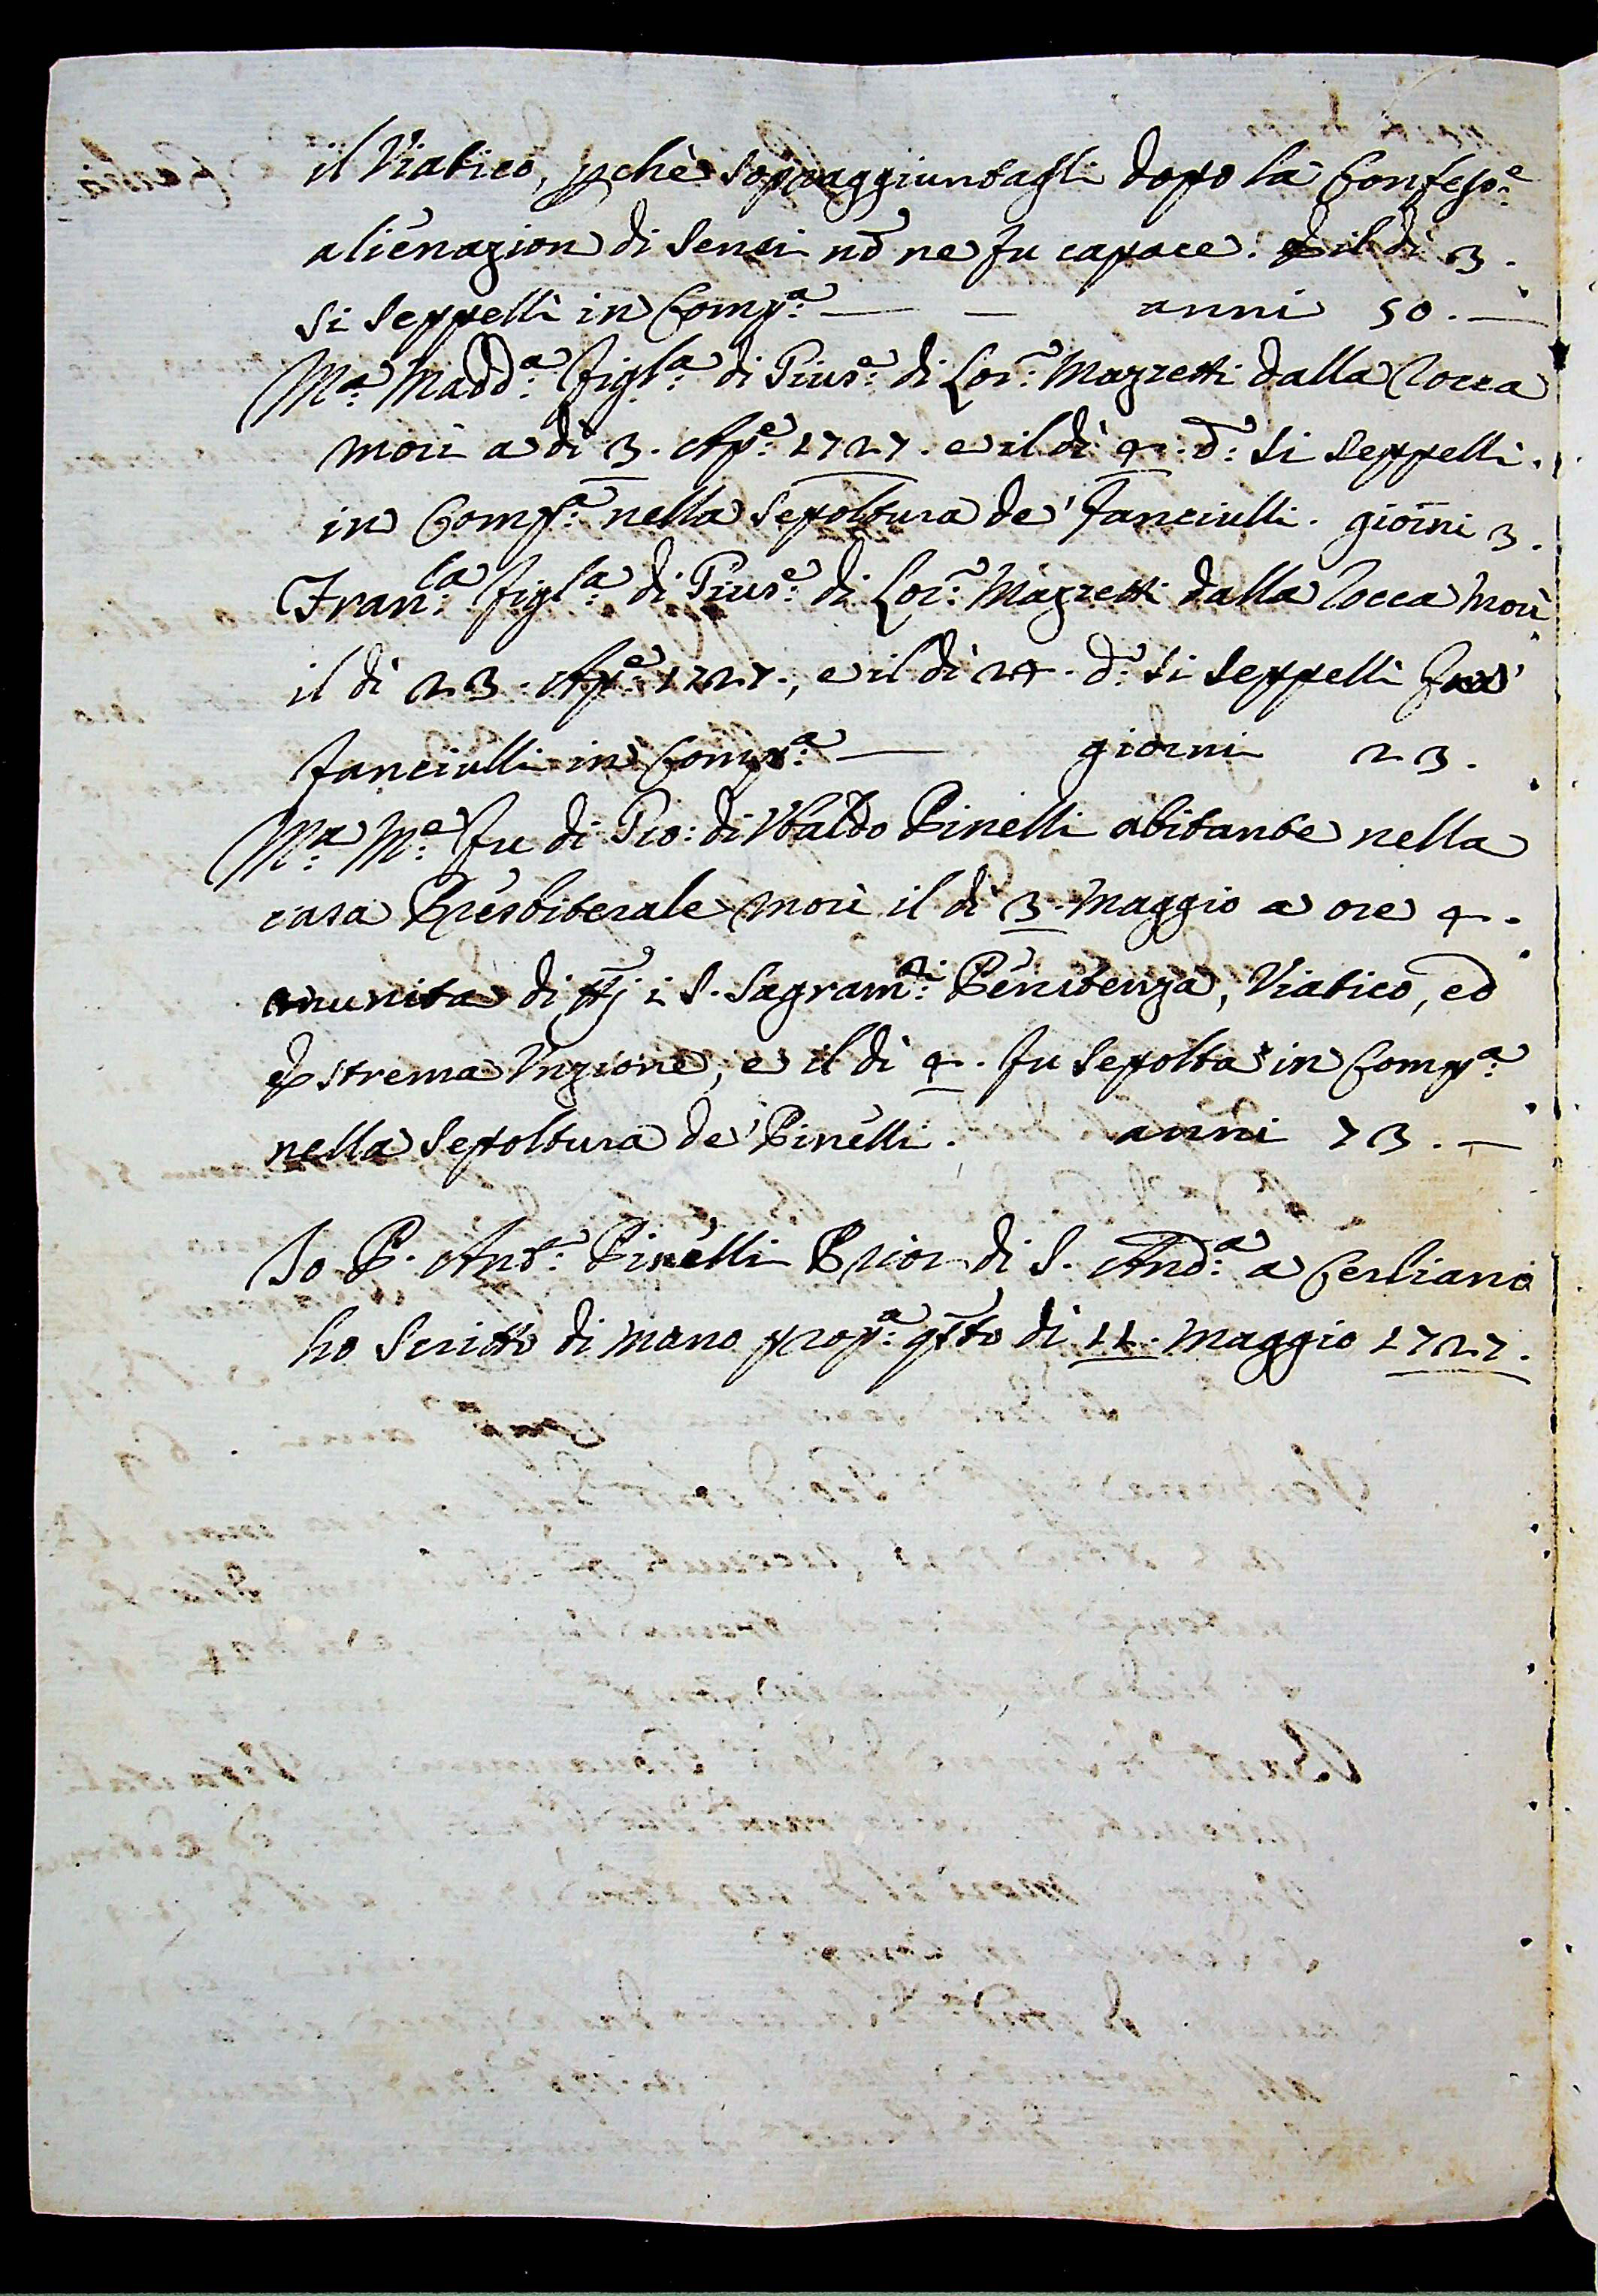 il Viatico, pchè sopraggiuntagli dopo la Confess:e
alienazion di sensi nō ne fu capace. E il dì 3.
si seppellì in Comp:a — — anni 50. —
M:a Madd:a figl:a di Gius:e di Lor: Mazzetti dalla Rocca
morì a dì 3. Ap:e 1727. e il dì 4. d: si seppellì
in Comp:a nella sepoltura de' fanciulli. giorni 3.
Fran:ca figl:a di Gius:e di Lor: Mazzetti dalla Rocca morì
il dì 23. Ap:e 1727., e il dì 24. d: si seppellì
fanciulli in Comp:a — giorni 23.
M:a M:e fu di Gio: di Ubaldo Pinelli abitante nella
casa Presbiterale morì il dì 3. Maggio a ore 4.
munita di ttj i S. Sagram:ti Penitenza, Viatico, ed
Estrema Unzione, e il dì 4. fu sepolta in Comp:a
nella sepoltura de' Pinelli. anni 73. —
Io P. Ant: Pinelli Prior di S. And:a a Cerliano
ho scritto di mano prop:a qsto dì 11. Maggio 1727.